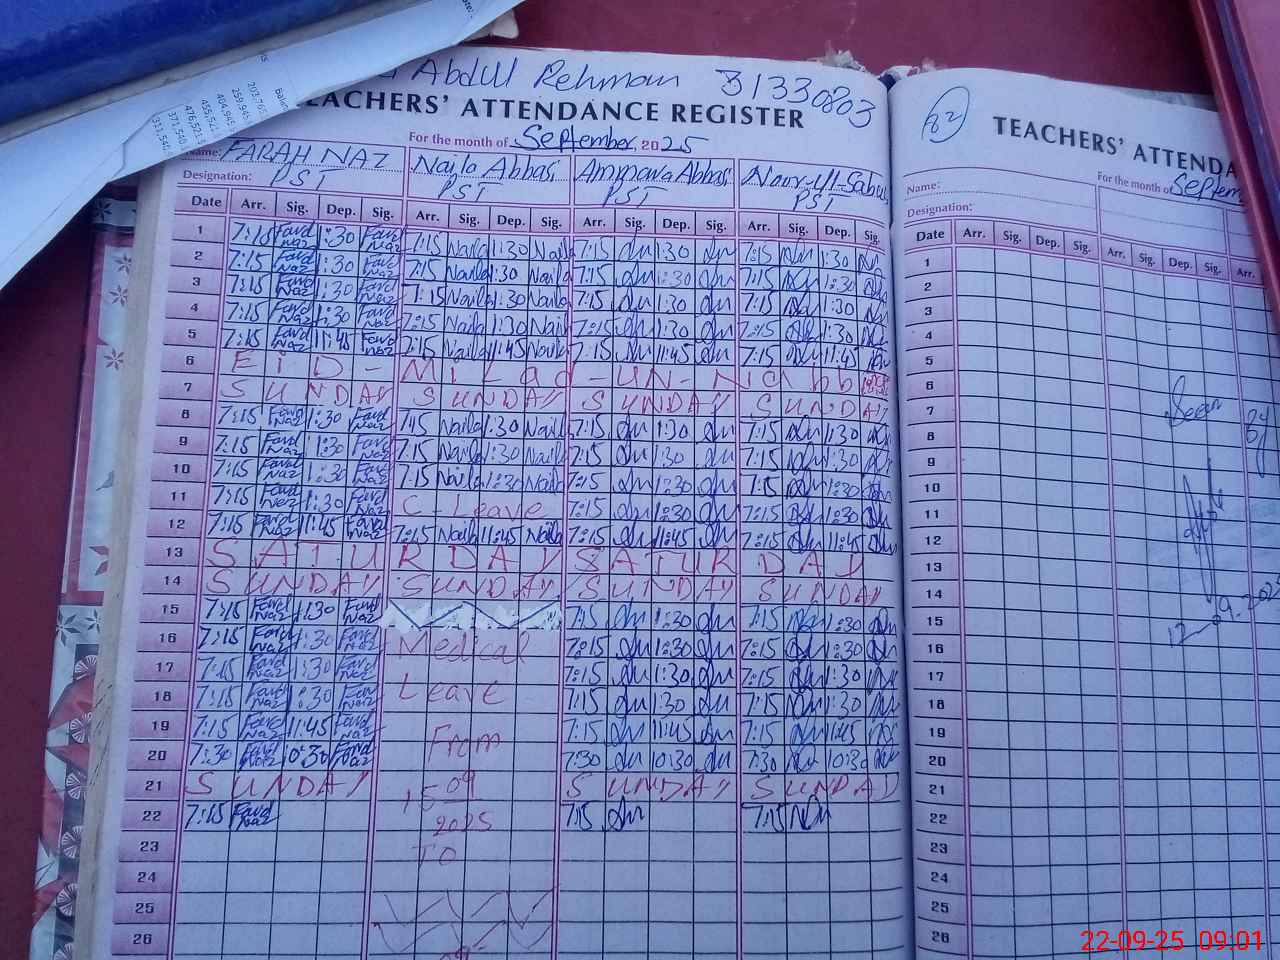 Abdul Rehman 31330803
TEACHERS' ATTENDANCE REGISTER
For the month of September, 2025
Name: FARAH NAZ Naila Abbasi Ammara Abbasi Noor-Ul-Sabah
Designation: PST PST PST PST
Date Arr. Sig. Dep. Sig. Arr. Sig. Dep. Sig. Arr. Sig. Dep. Sig. Arr. Sig. Dep. Sig.
1 7:15 Farah Naz 1:30 Farah Naz 7:15 Naila 1:30 Naila 7:15 1:30 7:15 1:30
2 7:15 Farah Naz 1:30 Farah Naz 7:15 Naila 1:30 Naila 7:15 1:30 7:15 1:30
3 7:15 Farah Naz 1:30 Farah Naz 7:15 Naila 1:30 Naila 7:15 1:30 7:15 1:30
4 7:15 Farah Naz 1:30 Farah Naz 7:15 Naila 1:30 Naila 7:15 1:30 7:15 1:30
5 7:15 Farah Naz 11:45 Farah Naz 7:15 Naila 11:45 Naila 7:15 11:45 7:15 11:45
6 EiD - Milad-UN-Nabb
7 SUNDAY SUNDAY SUNDAY SUNDAY
8 7:15 Farah Naz 1:30 Farah Naz 7:15 Naila 1:30 Naila 7:15 1:30 7:15 1:30
9 7:15 Farah Naz 1:30 Farah Naz 7:15 Naila 1:30 Naila 7:15 1:30 7:15 1:30
10 7:15 Farah Naz 1:30 Farah Naz 7:15 Naila 1:30 Naila 7:15 1:30 7:15 1:30
11 7:15 Farah Naz 1:30 Farah Naz C-Leave 7:15 1:30 7:15 1:30
12 7:15 Farah Naz 11:45 Farah Naz 7:15 Naila 11:45 Naila 7:15 11:45 7:15 11:45
13 SATURDAY SATURDAY
14 SUNDAY SUNDAY SUNDAY SUNDAY
15 7:15 Farah Naz 1:30 Farah Naz 7:15 1:30 7:15 1:30
16 7:15 Farah Naz 1:30 Farah Naz Medical 7:15 1:30 7:15 1:30
17 7:15 Farah Naz 1:30 Farah Naz 7:15 1:30 7:15 1:30
18 7:15 Farah Naz 1:30 Farah Naz Leave 7:15 1:30 7:15 1:30
19 7:15 Farah Naz 11:45 Farah Naz From 7:15 11:45 7:15 11:45
20 7:30 Farah Naz 10:30 Farah Naz 7:30 10:30 7:30 10:30
21 SUNDAY 15 09 SUNDAY SUNDAY
22 7:15 Farah Naz 2025 7:15 7:15
23 TO
24
25
26
82
TEACHERS' ATTENDA
For the month of Septem
Name:
Designation:
Date Arr. Sig. Dep. Sig. Arr. Sig. Dep. Sig. Arr.
1
2
3
4
5
6
7 Seen
8
9
10
11
12
13
14
15 12-09-202
16
17
18
19
20
21
22
23
24
25
26
22-09-25 09:01